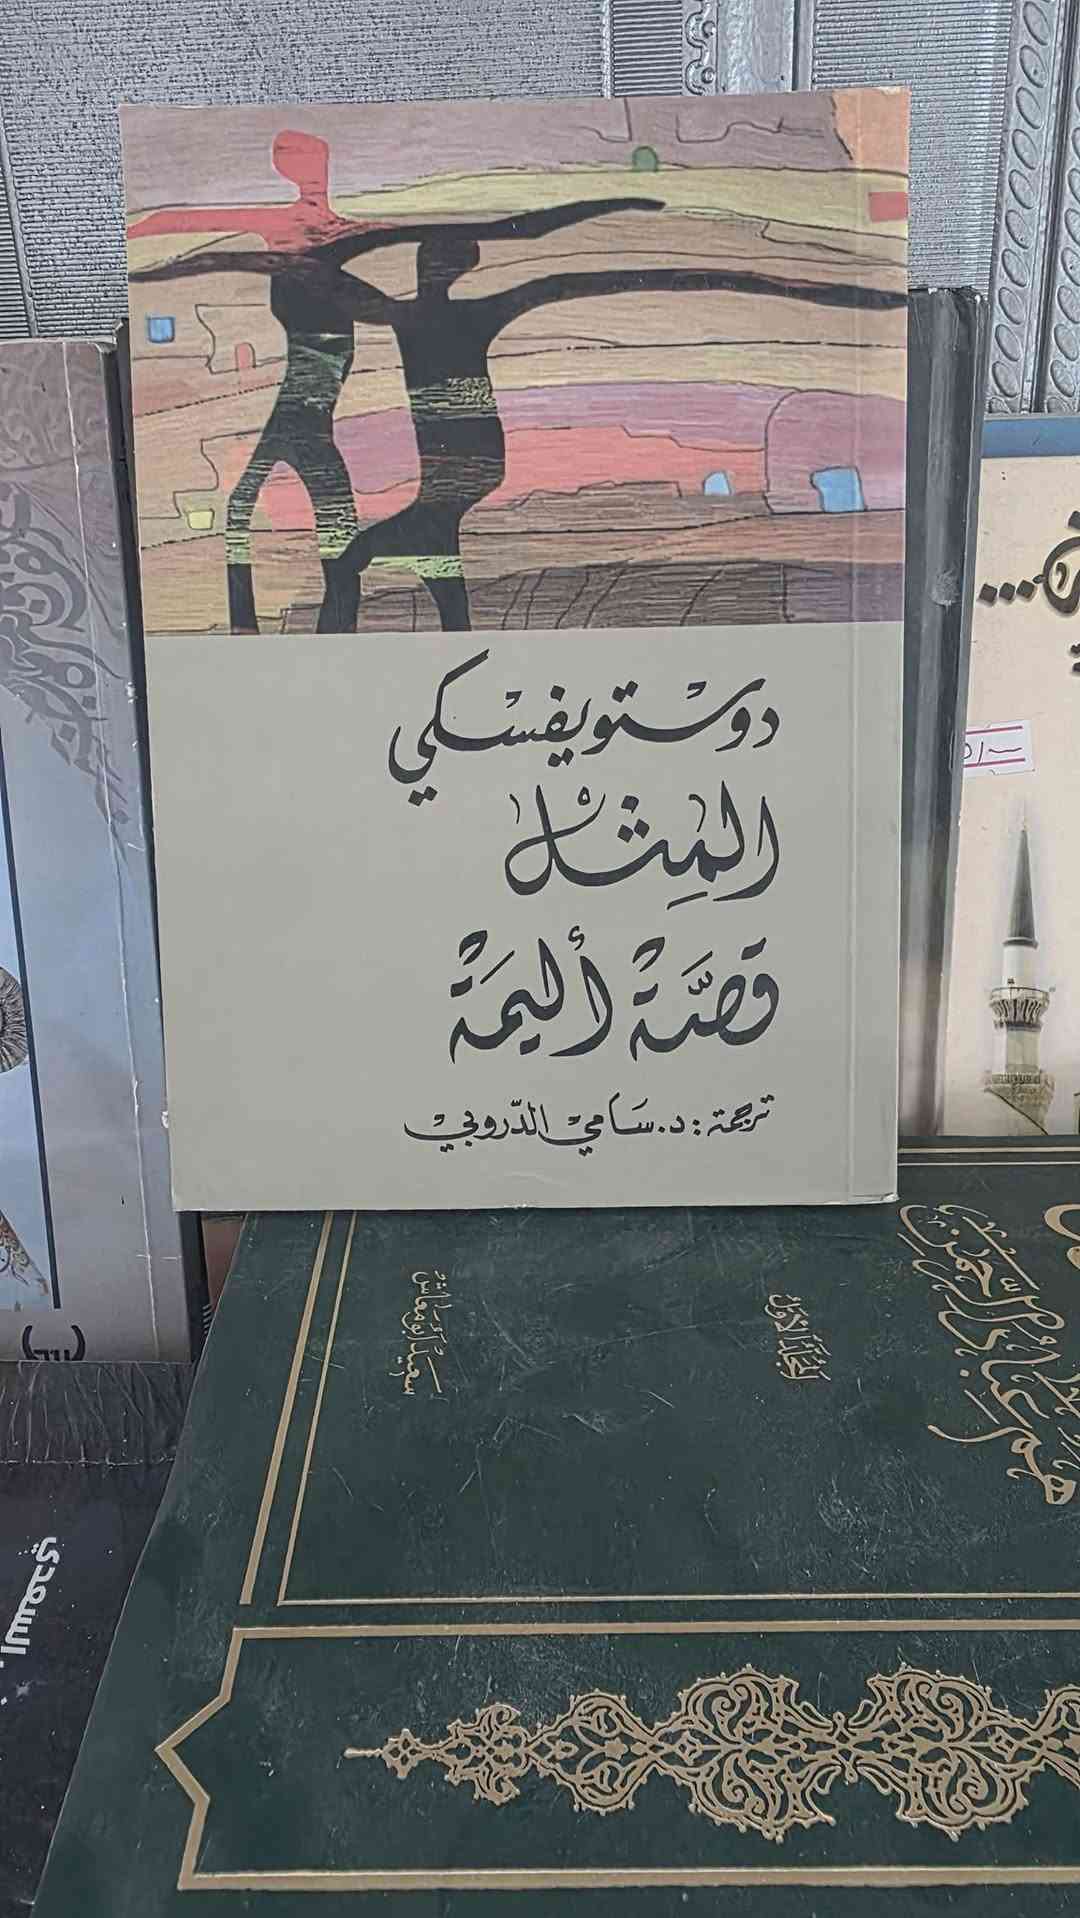 دوستويفسكي
المِثْل
قصَّة أليمَة
ترجمة: د. سَامي الدّروبي
المجَلّد الأوّل
السعدي